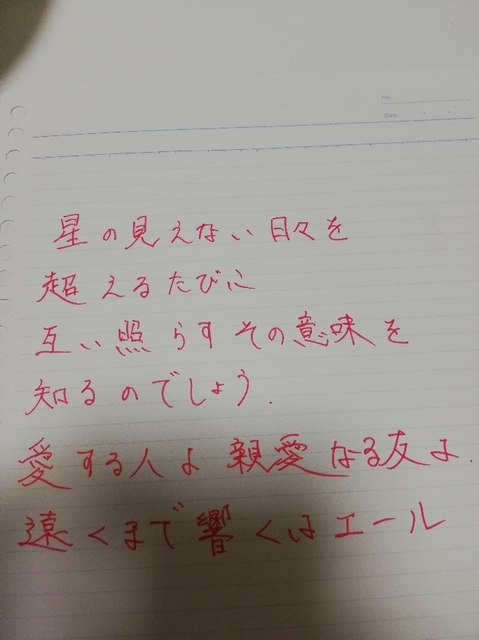 No.
Date
星の見えない日々を
超えるたびに
互い照らすその意味を
知るのでしょう.
愛する人よ 親愛なる友よ.
遠くまで響くはエール